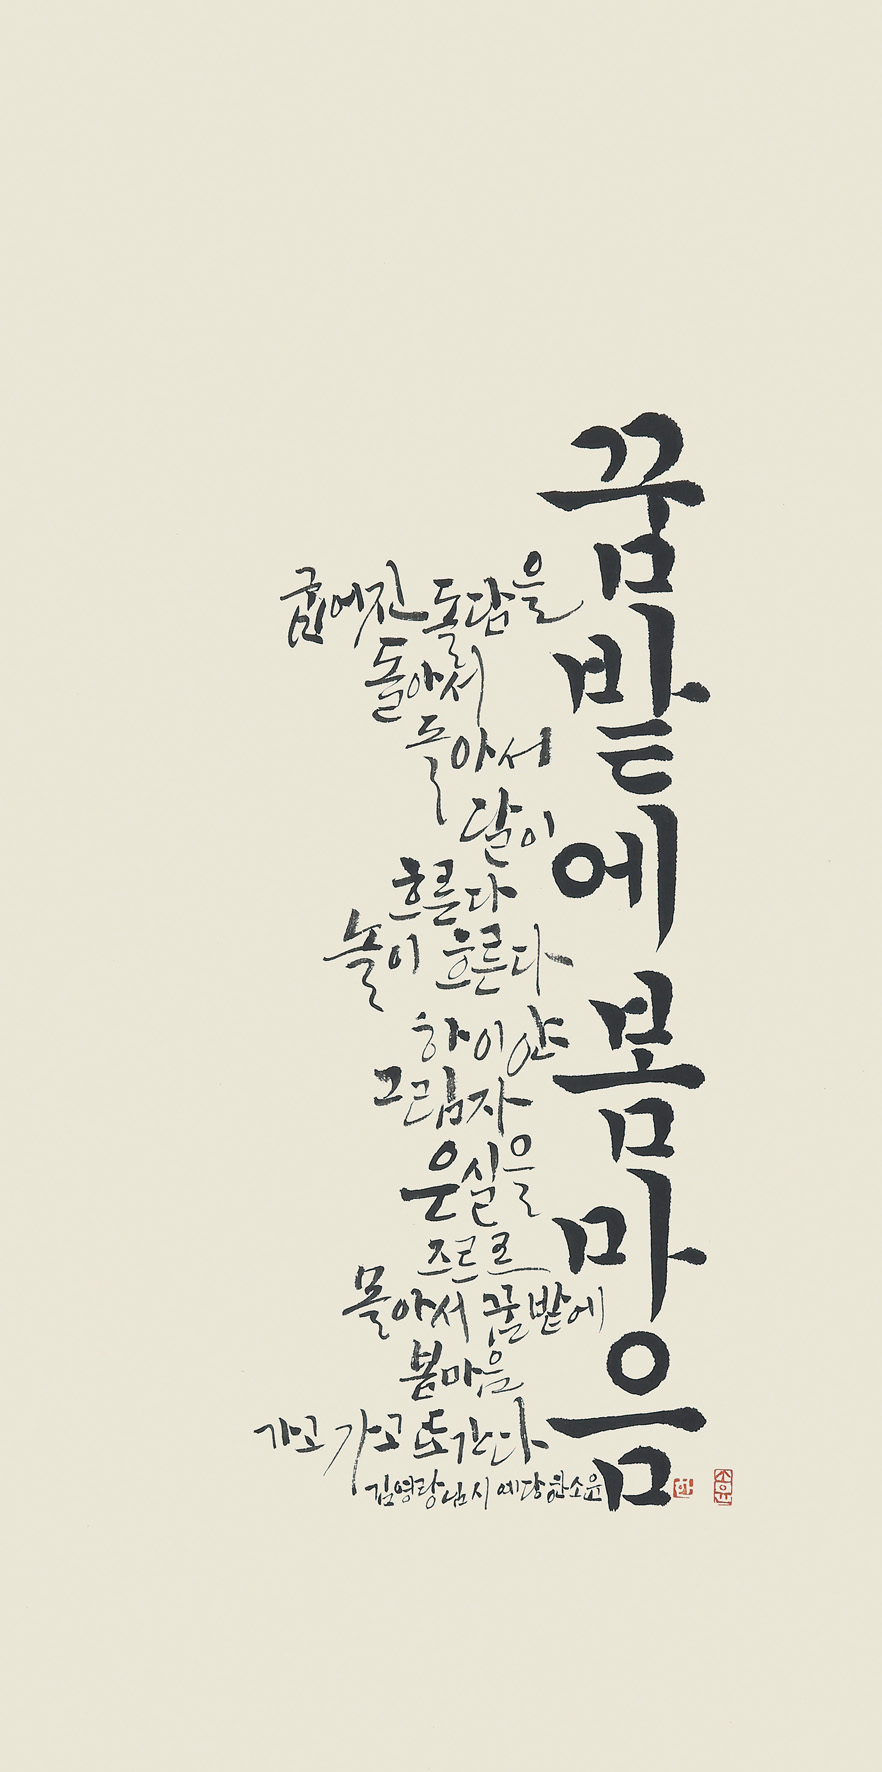 꿈밭에봄마음
굽어진 돌담을
돌아서
돌아서
달이
흐른다
놀이 흐른다
하이얀
그림자
은실을
즈르르
몰아서 꿈밭에
봄마음
가고 가고 또간다
김영랑님시 예당 한소윤
소윤